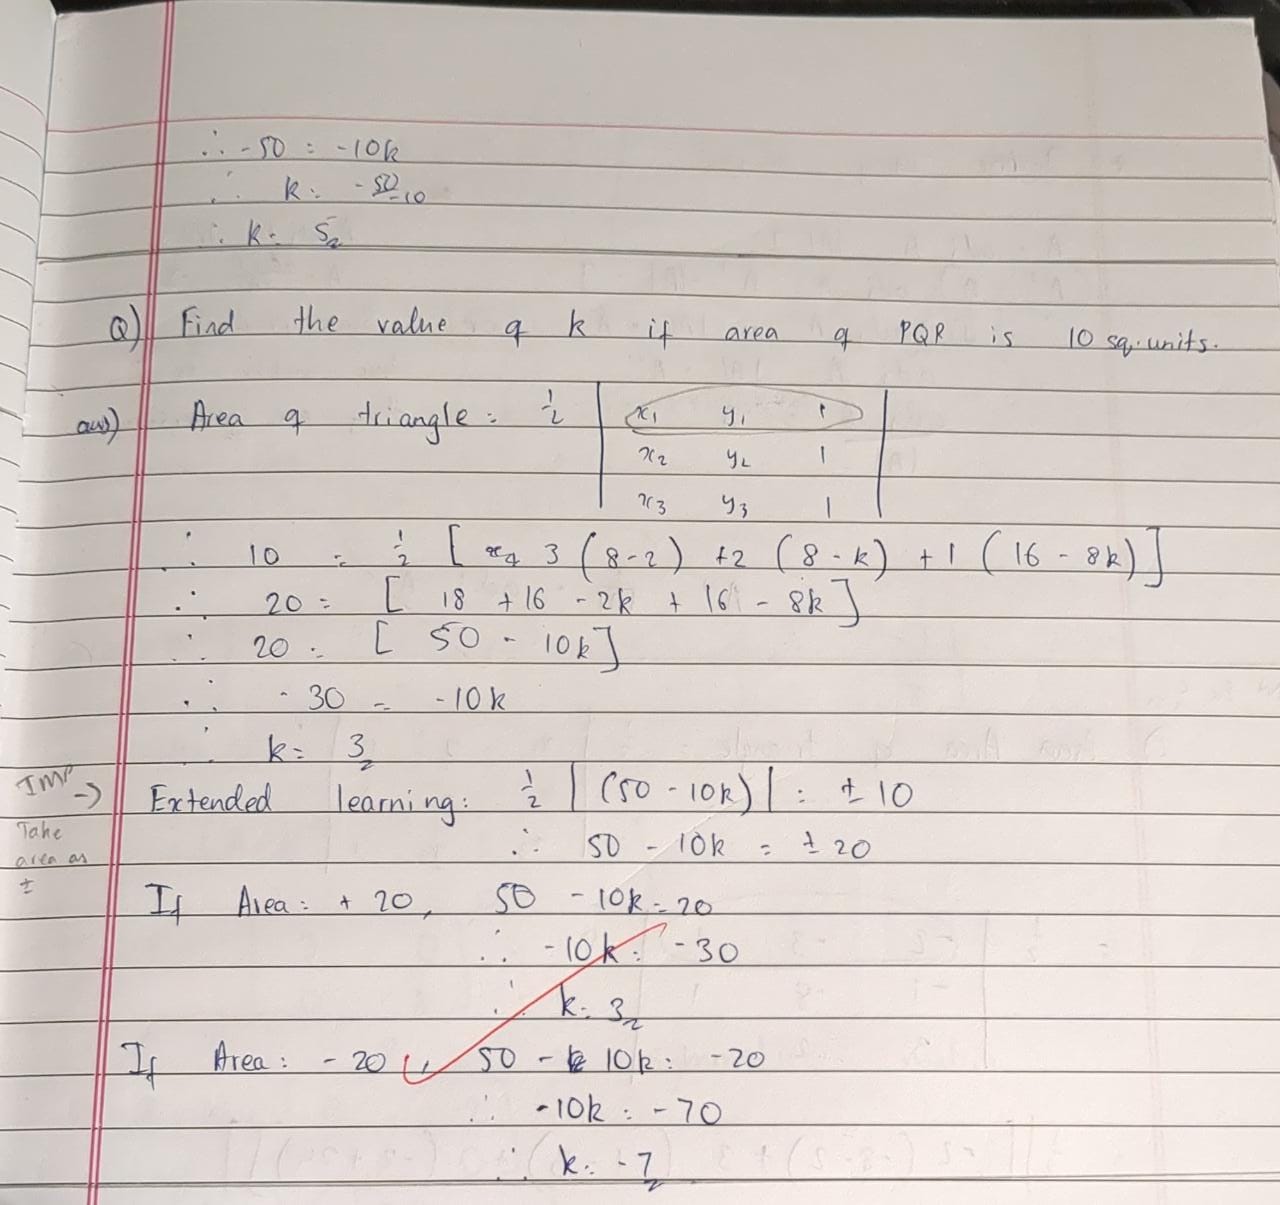 ∴ -50 = -10k
∴ k = -50/-10
∴ k = 5
Q) Find the value of k if area of PQR is 10 sq. units.
ans) Area of triangle = 1/2 | x1 y1 1 |
| x2 y2 1 |
| x3 y3 1 |
∴ 10 = 1/2 [ 3 (8-2) +2 (8-k) +1 (16-8k) ]
∴ 20 = [ 18 + 16 - 2k + 16 - 8k ]
∴ 20 = [ 50 - 10k ]
∴ -30 = -10k
∴ k = 3
IMP → Extended learning: 1/2 | (50 - 10k) | = ± 10
Take area as ±
∴ 50 - 10k = ± 20
If Area = + 20, 50 - 10k = 20
∴ -10k = -30
∴ k = 3
If Area = - 20, 50 - 10k = -20
∴ -10k = -70
∴ k = -7